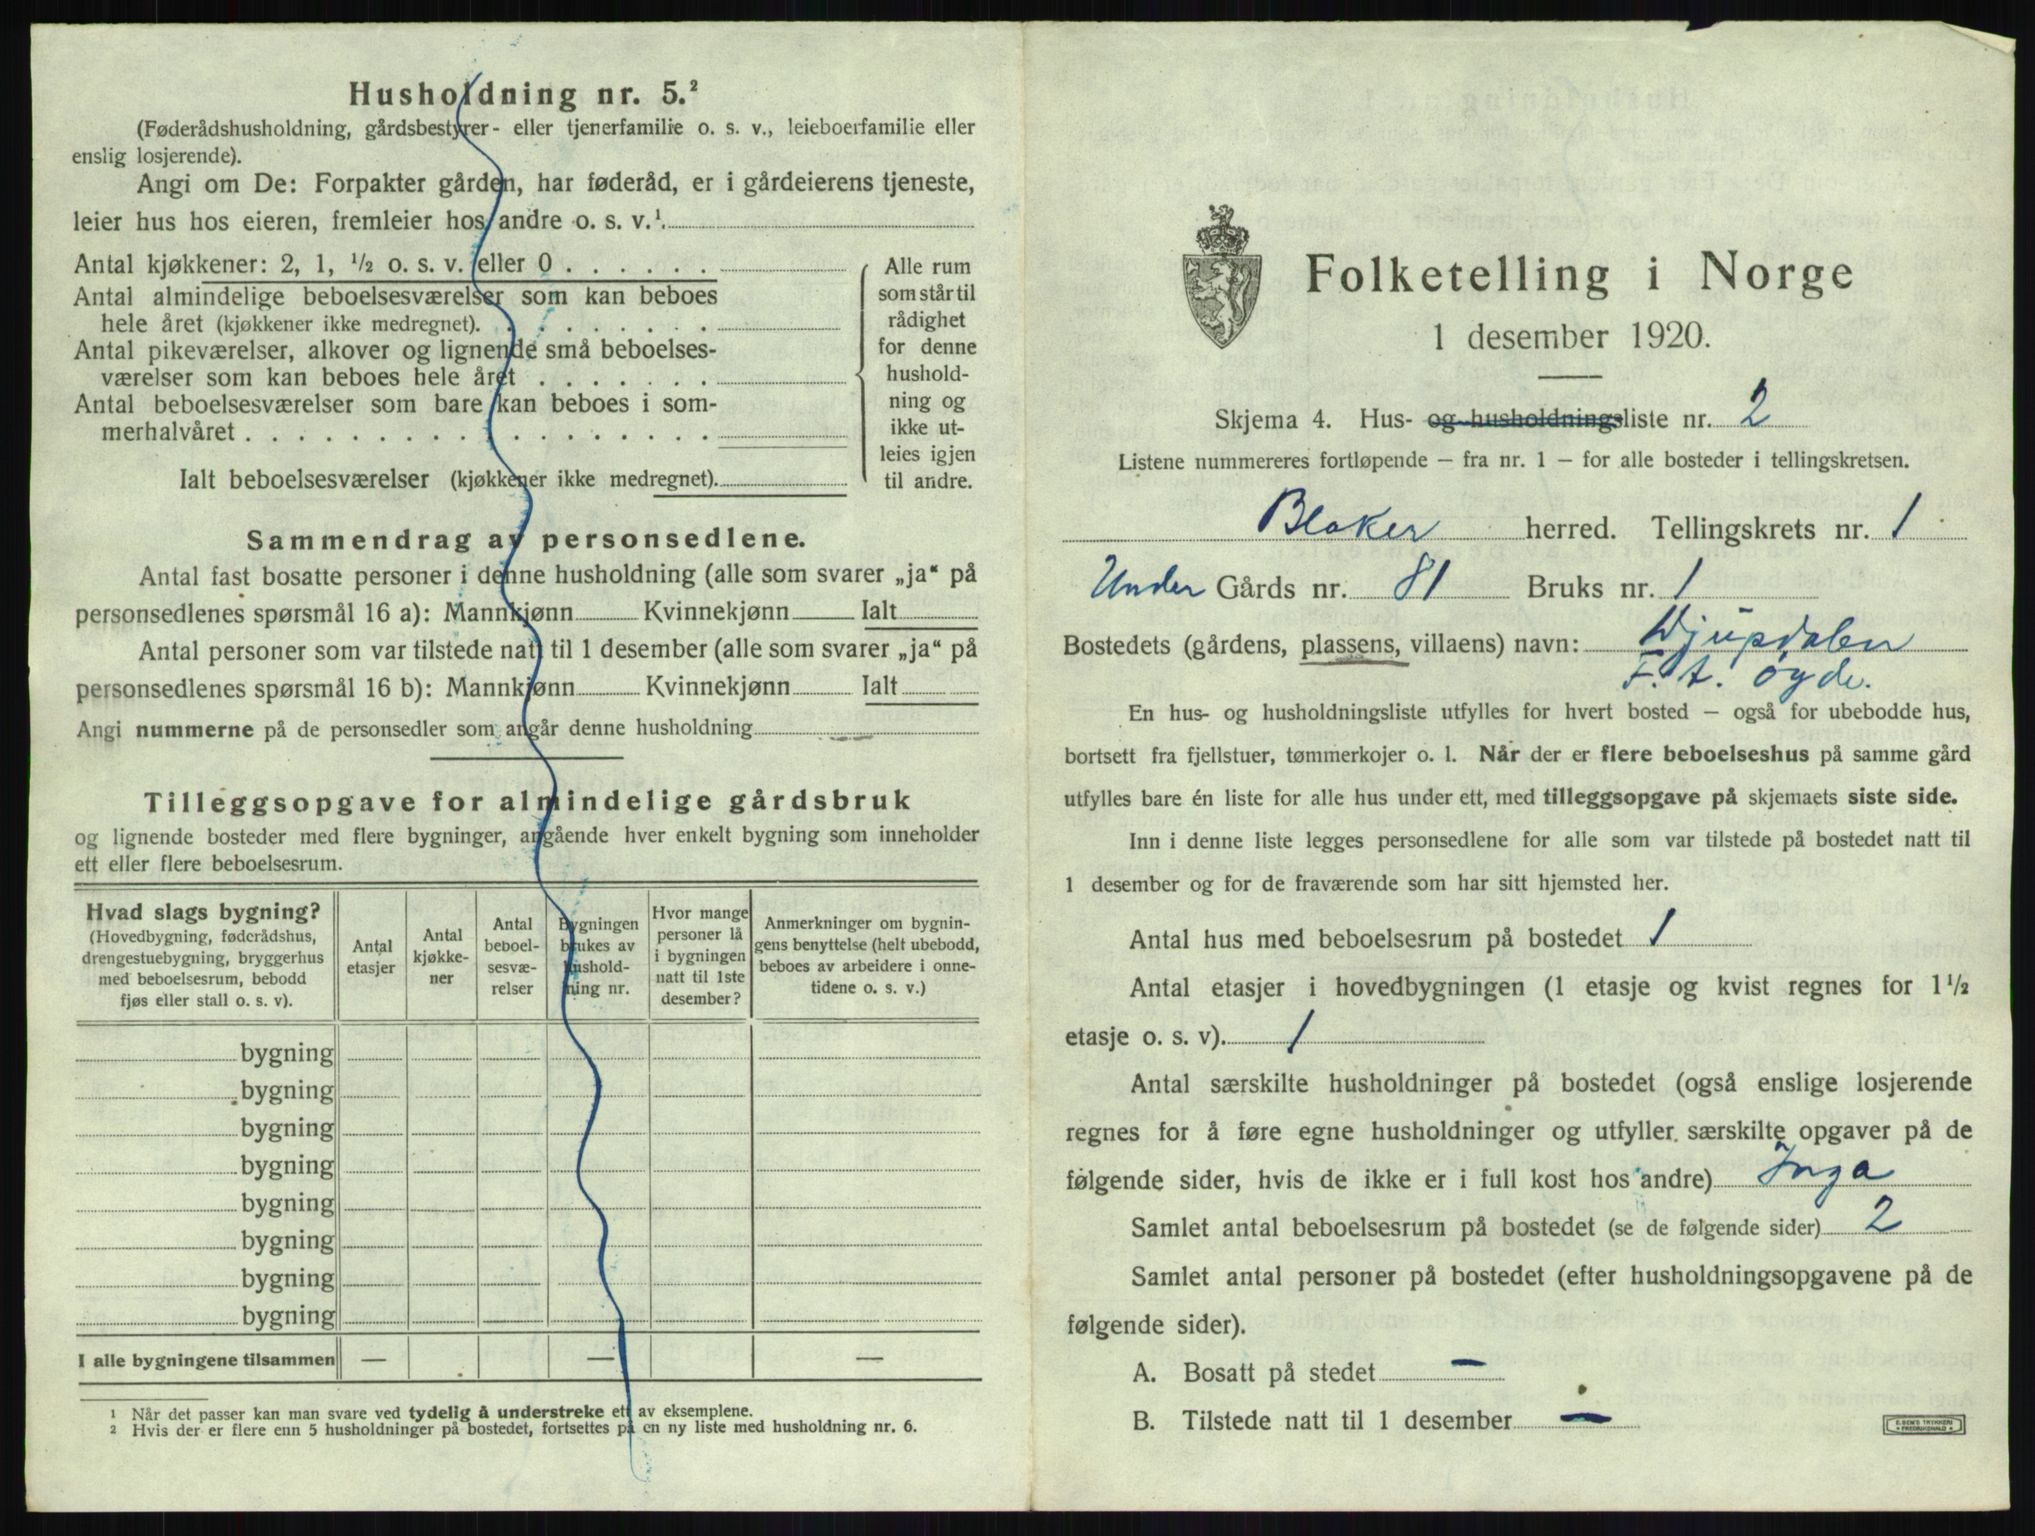 Husholdning nr. 5.²
(Føderådshusholdning, gårdsbestyrer- eller tjenerfamilie o. s. v., leieboerfamilie eller
enslig losjerende).
Angi om De: Forpakter gården, har føderåd, er i gårdeierens tjeneste,
leier hus hos eieren, fremleier hos andre o. s. v.¹.
Antal kjøkkener: 2, 1, ½ o. s. v. eller 0 . . . . . .
Antal almindelige beboelsesværelser som kan beboes
hele året (kjøkkener ikke medregnet). . . . . . . . .
Antal pikeværelser, alkover og lignende små beboelses-
værelser som kan beboes hele året . . . . . . .
Antal beboelsesværelser som bare kan beboes i som-
merhalvåret . . . . . . . . . . . . . . . . . .
Ialt beboelsesværelser (kjøkkener ikke medregnet).
Alle rum
som står til
rådighet
for denne
hushold-
ning og
ikke ut-
leies igjen
til andre.
Sammendrag av personsedlene.
Antal fast bosatte personer i denne husholdning (alle som svarer „ja“ på
personsedlenes spørsmål 16 a): Mannkjønn Kvinnekjønn Ialt
Antal personer som var tilstede natt til 1 desember (alle som svarer „ja“ på
personsedlenes spørsmål 16 b): Mannkjønn Kvinnekjønn Ialt
Angi nummerne på de personsedler som angår denne husholdning
Tilleggsopgave for almindelige gårdsbruk
og lignende bosteder med flere bygninger, angående hver enkelt bygning som inneholder
ett eller flere beboelsesrum.
Hvad slags bygning?
(Hovedbygning, føderådshus,
drengestuebygning, bryggerhus
med beboelsesrum, bebodd
fjøs eller stall o. s. v).
Antal
etasjer
Antal
kjøkke-
ner
Antal
beboel-
sesvæ-
relser
Bygningen
brukes av
hushold-
ning nr.
Hvor mange
personer lå
i bygningen
natt til 1ste
desember?
Anmerkninger om bygnin-
gens benyttelse (helt ubebodd,
beboes av arbeidere i onne-
tidene o. s. v.)
bygning
bygning
bygning
bygning
bygning
bygning
bygning
bygning
I alle bygningene tilsammen — — —
¹ Når det passer kan man svare ved tydelig å understreke ett av eksemplene.
² Hvis der er flere enn 5 husholdninger på bostedet, fortsettes på en ny liste med husholdning nr. 6.
Folketelling i Norge
1 desember 1920.
Skjema 4. Hus- og husholdningsliste nr. 2
Listene nummereres fortløpende – fra nr. 1 – for alle bosteder i tellingskretsen.
Blaker herred. Tellingskrets nr. 1
Under Gårds nr. 81 Bruks nr. 1
Bostedets (gårdens, plassens, villaens) navn: Djupdalen
F. t. øyde.
En hus- og husholdningsliste utfylles for hvert bosted – også for ubebodde hus,
bortsett fra fjellstuer, tømmerkojer o. l. Når der er flere beboelseshus på samme gård
utfylles bare én liste for alle hus under ett, med tilleggsopgave på skjemaets siste side.
Inn i denne liste legges personsedlene for alle som var tilstede på bostedet natt til
1 desember og for de fraværende som har sitt hjemsted her.
Antal hus med beboelsesrum på bostedet 1
Antal etasjer i hovedbygningen (1 etasje og kvist regnes for 1½
etasje o. s. v). 1
Antal særskilte husholdninger på bostedet (også enslige losjerende
regnes for å føre egne husholdninger og utfyller særskilte opgaver på de
følgende sider, hvis de ikke er i full kost hos andre) Inga
Samlet antal beboelsesrum på bostedet (se de følgende sider) 2
Samlet antal personer på bostedet (efter husholdningsopgavene på de
følgende sider).
A. Bosatt på stedet —
B. Tilstede natt til 1 desember —